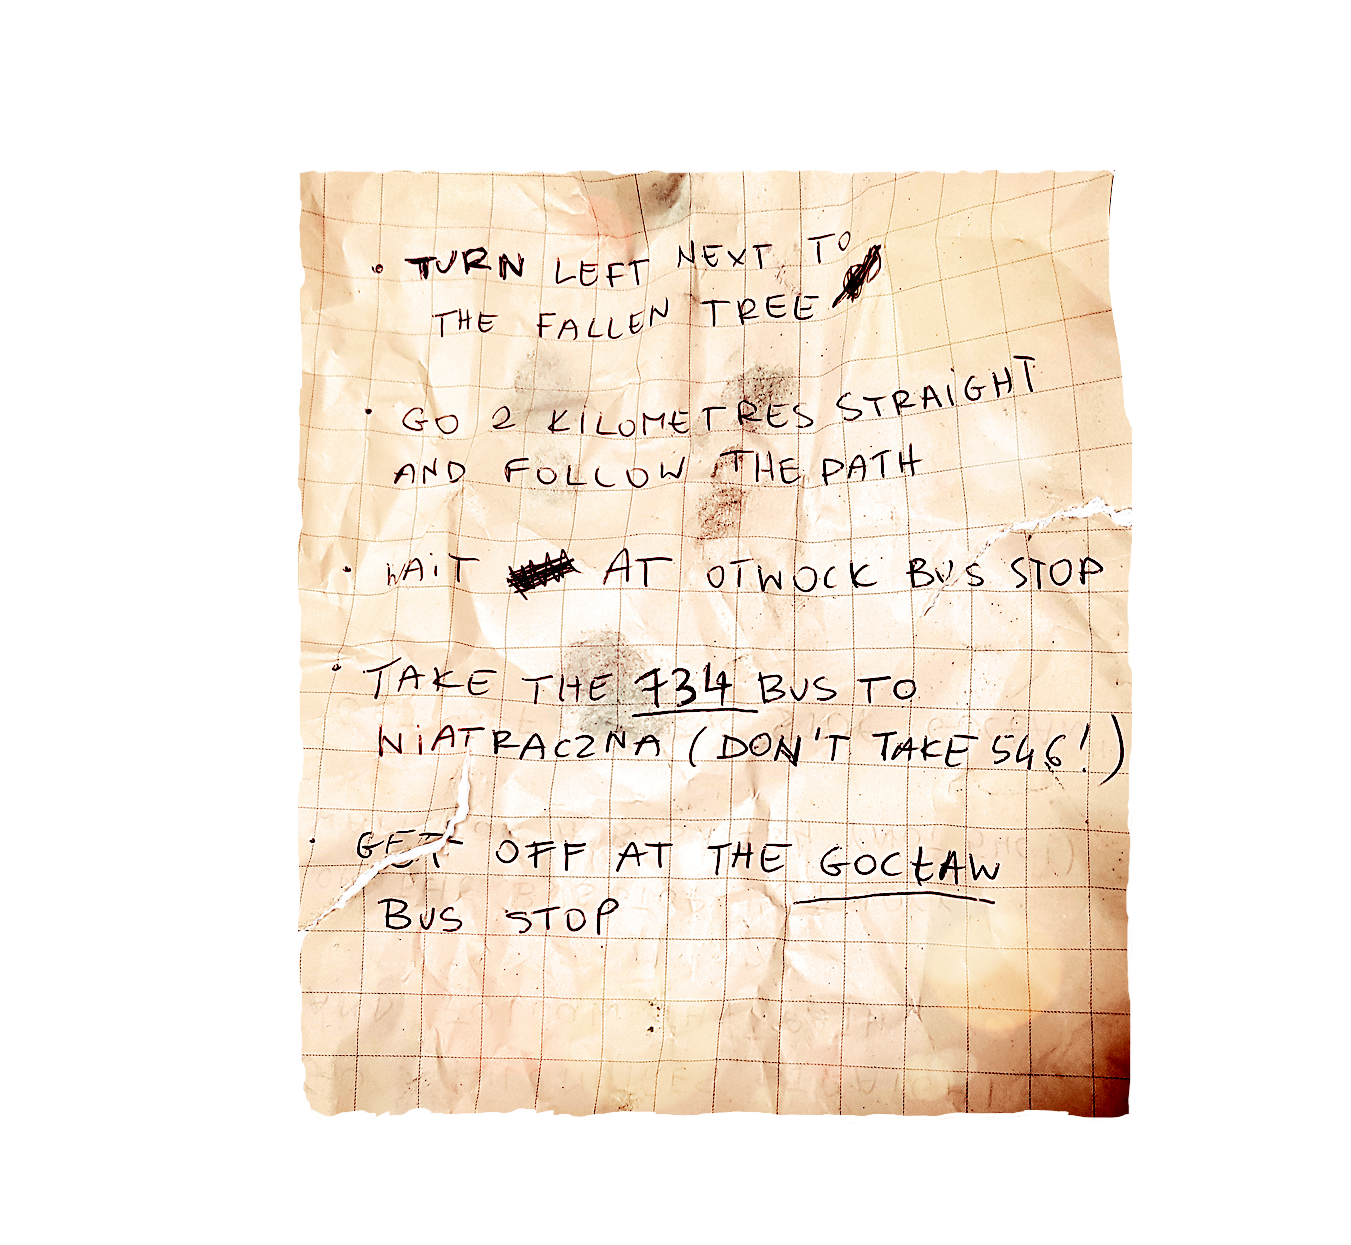 • TURN LEFT NEXT TO
THE FALLEN TREE
• GO 2 KILOMETRES STRAIGHT
AND FOLLOW THE PATH
• WAIT AT OTWOCK BUS STOP
• TAKE THE 734 BUS TO
WIATRACZNA (DON'T TAKE 546!)
• GET OFF AT THE GOCŁAW
BUS STOP